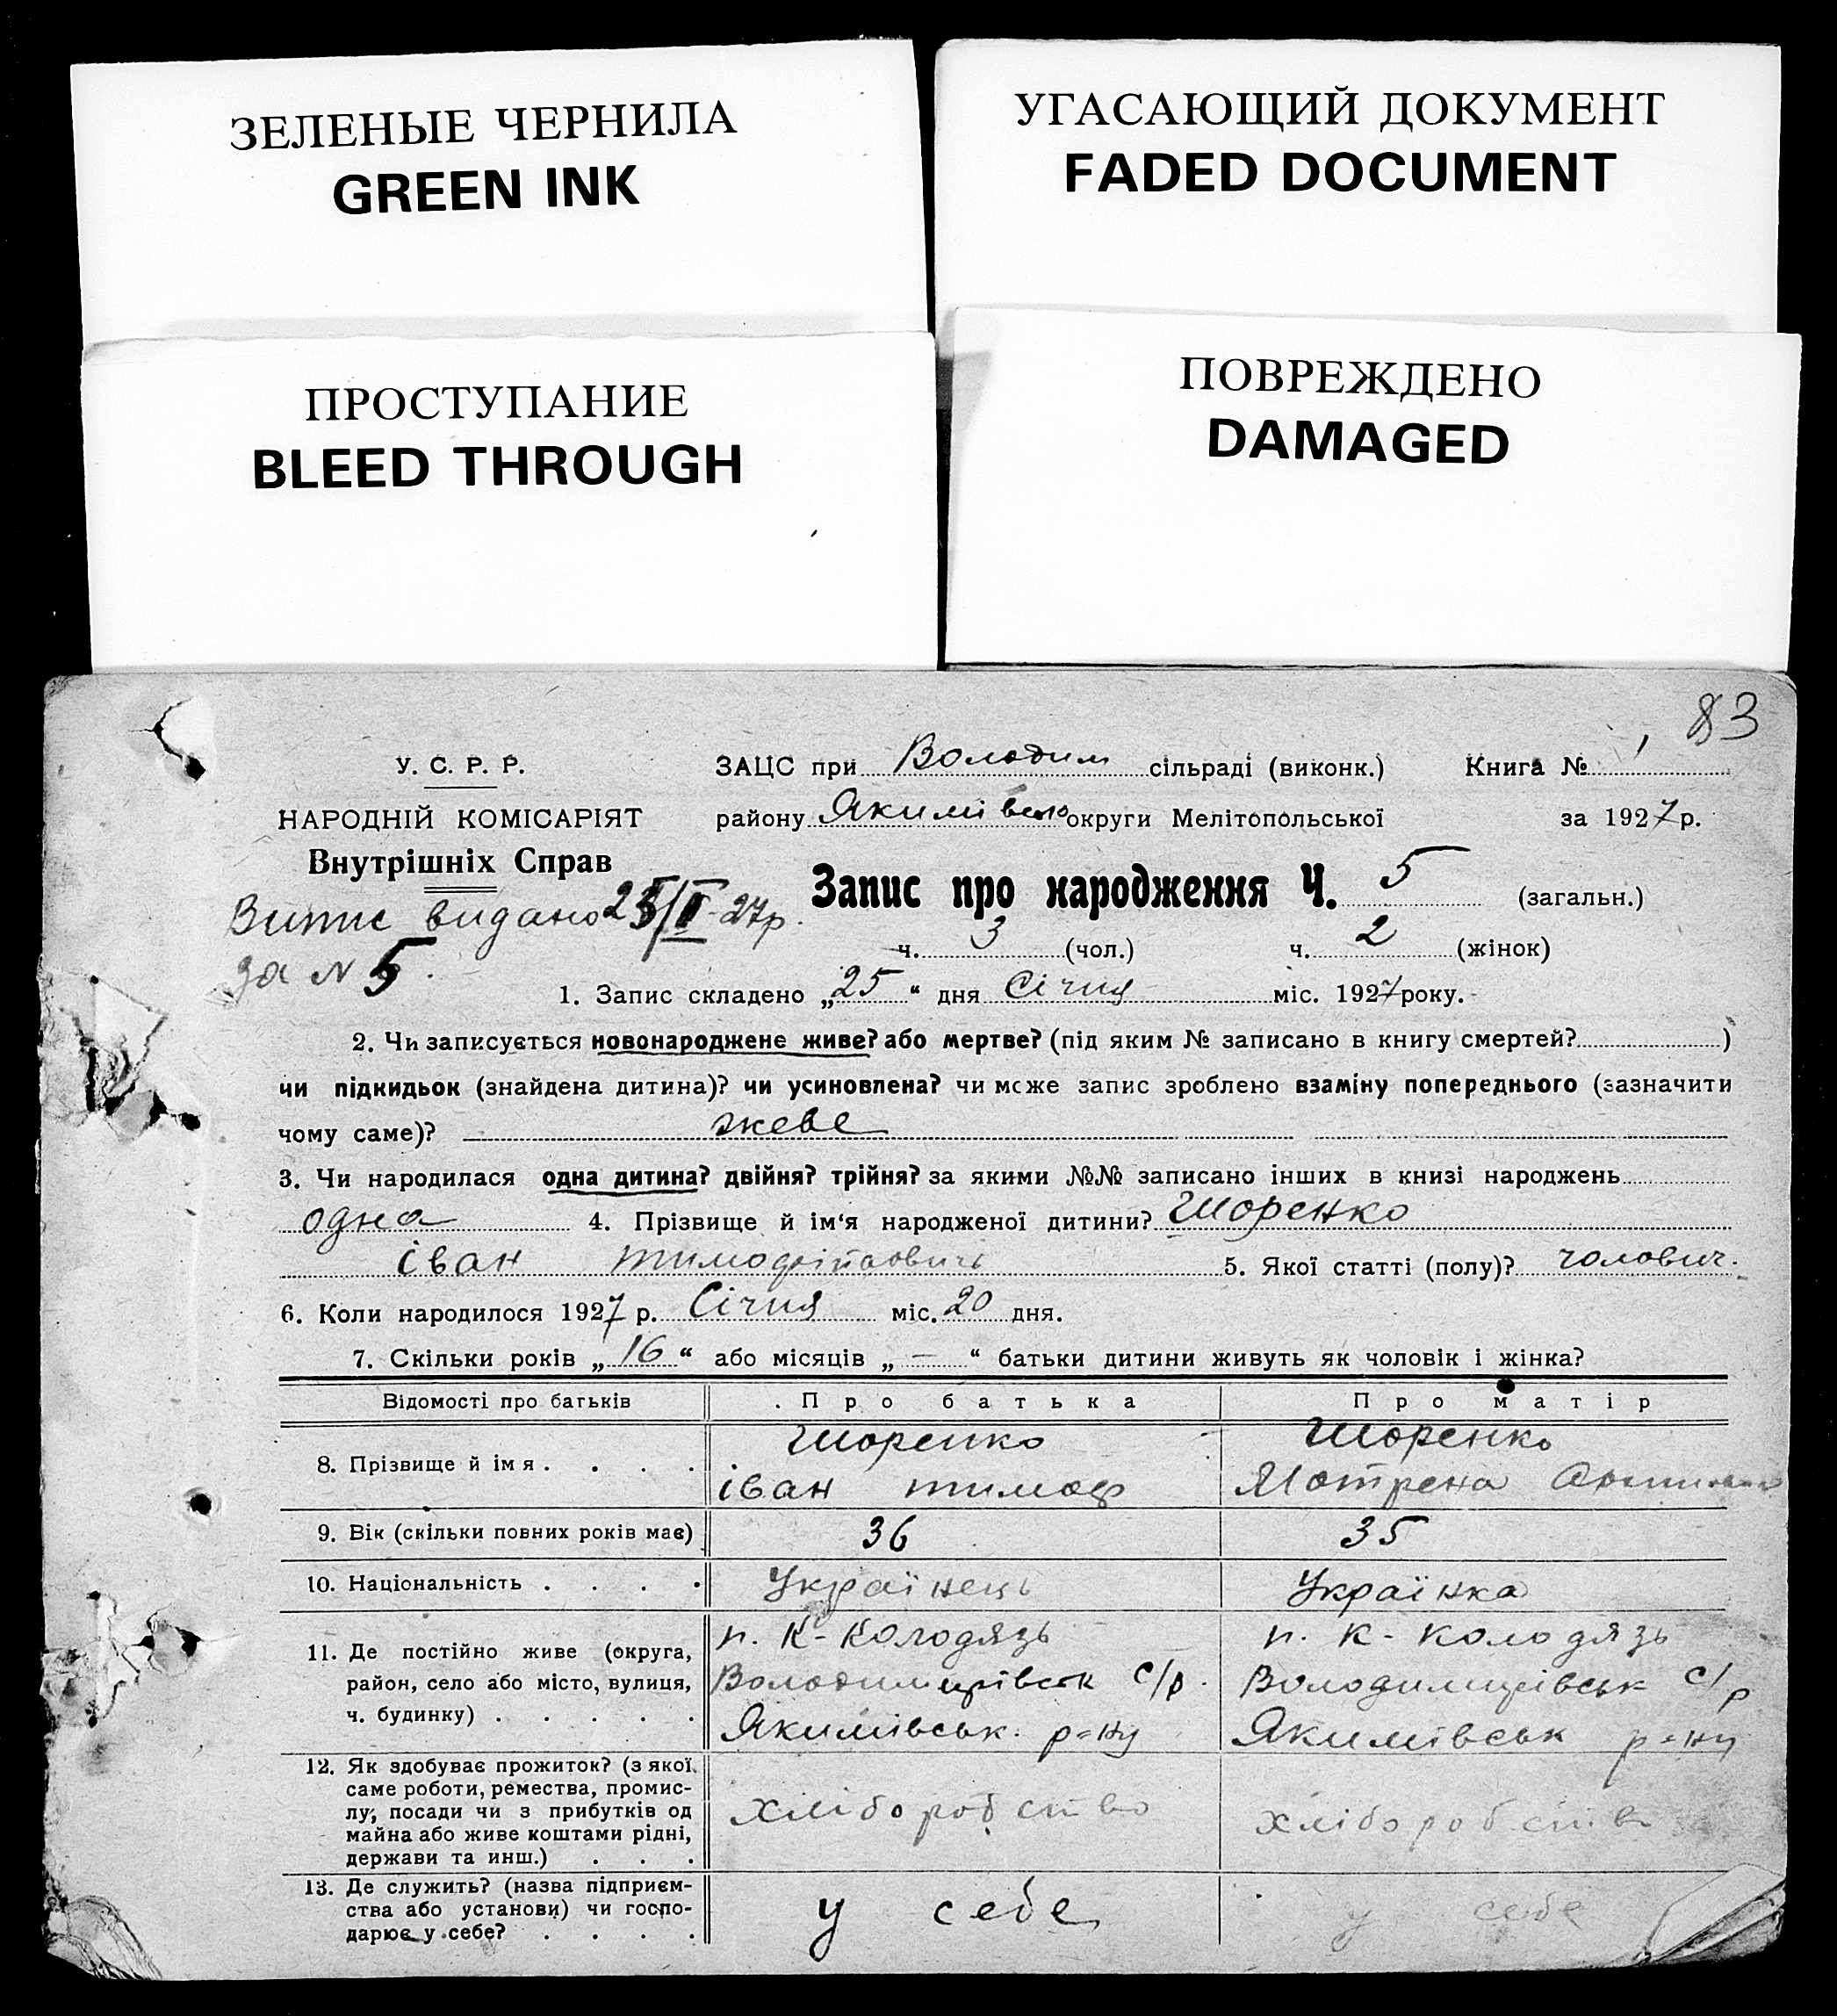 ЗЕЛЕНЫЕ ЧЕРНИЛА
GREEN INK
УГАСАЮЩИЙ ДОКУМЕНТ
FADED DOCUMENT
ПРОСТУПАНИЕ
BLEED THROUGH
ПОВРЕЖДЕНО
DAMAGED
83
У. С. Р. Р.
НАРОДНІЙ КОМІСАРІЯТ
Внутрішніх Справ
Випис видано 25/II-27р.
за № 5.
ЗАЦС при Володим сільраді (виконк.) Книга № 1
району Якимівсько округи Мелітопольської за 1927р.
Запис про народження Ч. 5 (загальн.)
ч. 3 (чол.) ч. 2 (жінок)
1. Запис складено „25“ дня Січня міс. 1927року.
2. Чи записується новонароджене живе? або мертве? (під яким № записано в книгу смертей? )
чи підкидьок (знайдена дитина)? чи усиновлена? чи може запис зроблено взаміну попереднього (зазначити
чому саме)? жеве
3. Чи народилася одна дитина? двійня? трійня? за якими №№ записано інших в книзі народжень
одна 4. Прізвище й ім‘я народженої дитини? Шоренко
іван 5. Якої статті (полу)? чолович.
6. Коли народилося 1927 р. Січня міс. 20 дня.
7. Скільки років „16“ або місяців „—“ батьки дитини живуть як чоловік і жінка?
Відомості про батьків Про батька Про матір
8. Прізвище й імя . . . . Шоренко Шоренко
іван тимоф Мотрена
9. Вік (скільки повних років має) 36 35
10. Національність . . . . Українець Українка
11. Де постійно живе (округа, п. К-Колодязь п. К-Колодязь
район, село або місто, вулиця, Володимирівськ с/р. Володимирівськ с/р
ч. будинку) . . . . . Якимівськ. р=ну Якимівськ р=ну
12. Як здобуває прожиток? (з якої
саме роботи, ремества, промис-
лу, посади чи з прибутків од хліборобство хліборобство
майна або живе коштами рідні,
держави та инш.) . . .
13. Де служить? (назва підприєм-
ства або установи) чи госпо- у себе у себе
дарює у себе? . . . .